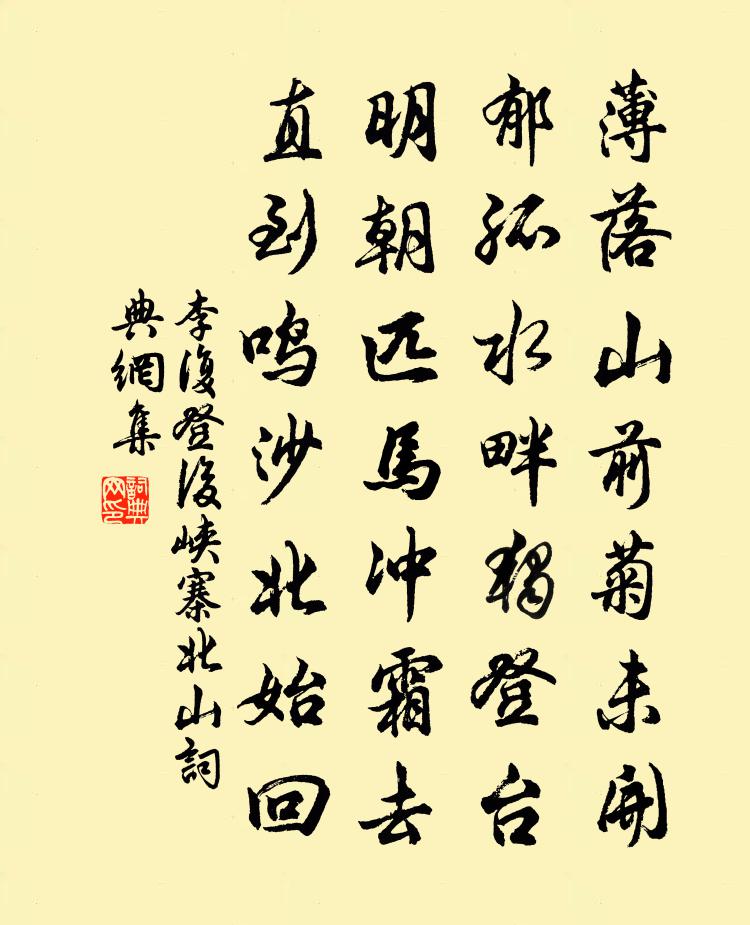 薄落山前菊未開
郁孤水畔獨登台
明朝匹馬冲霜去
直到鸣沙北始回
李復登後峡寨北山詞
典網集
詞典网印